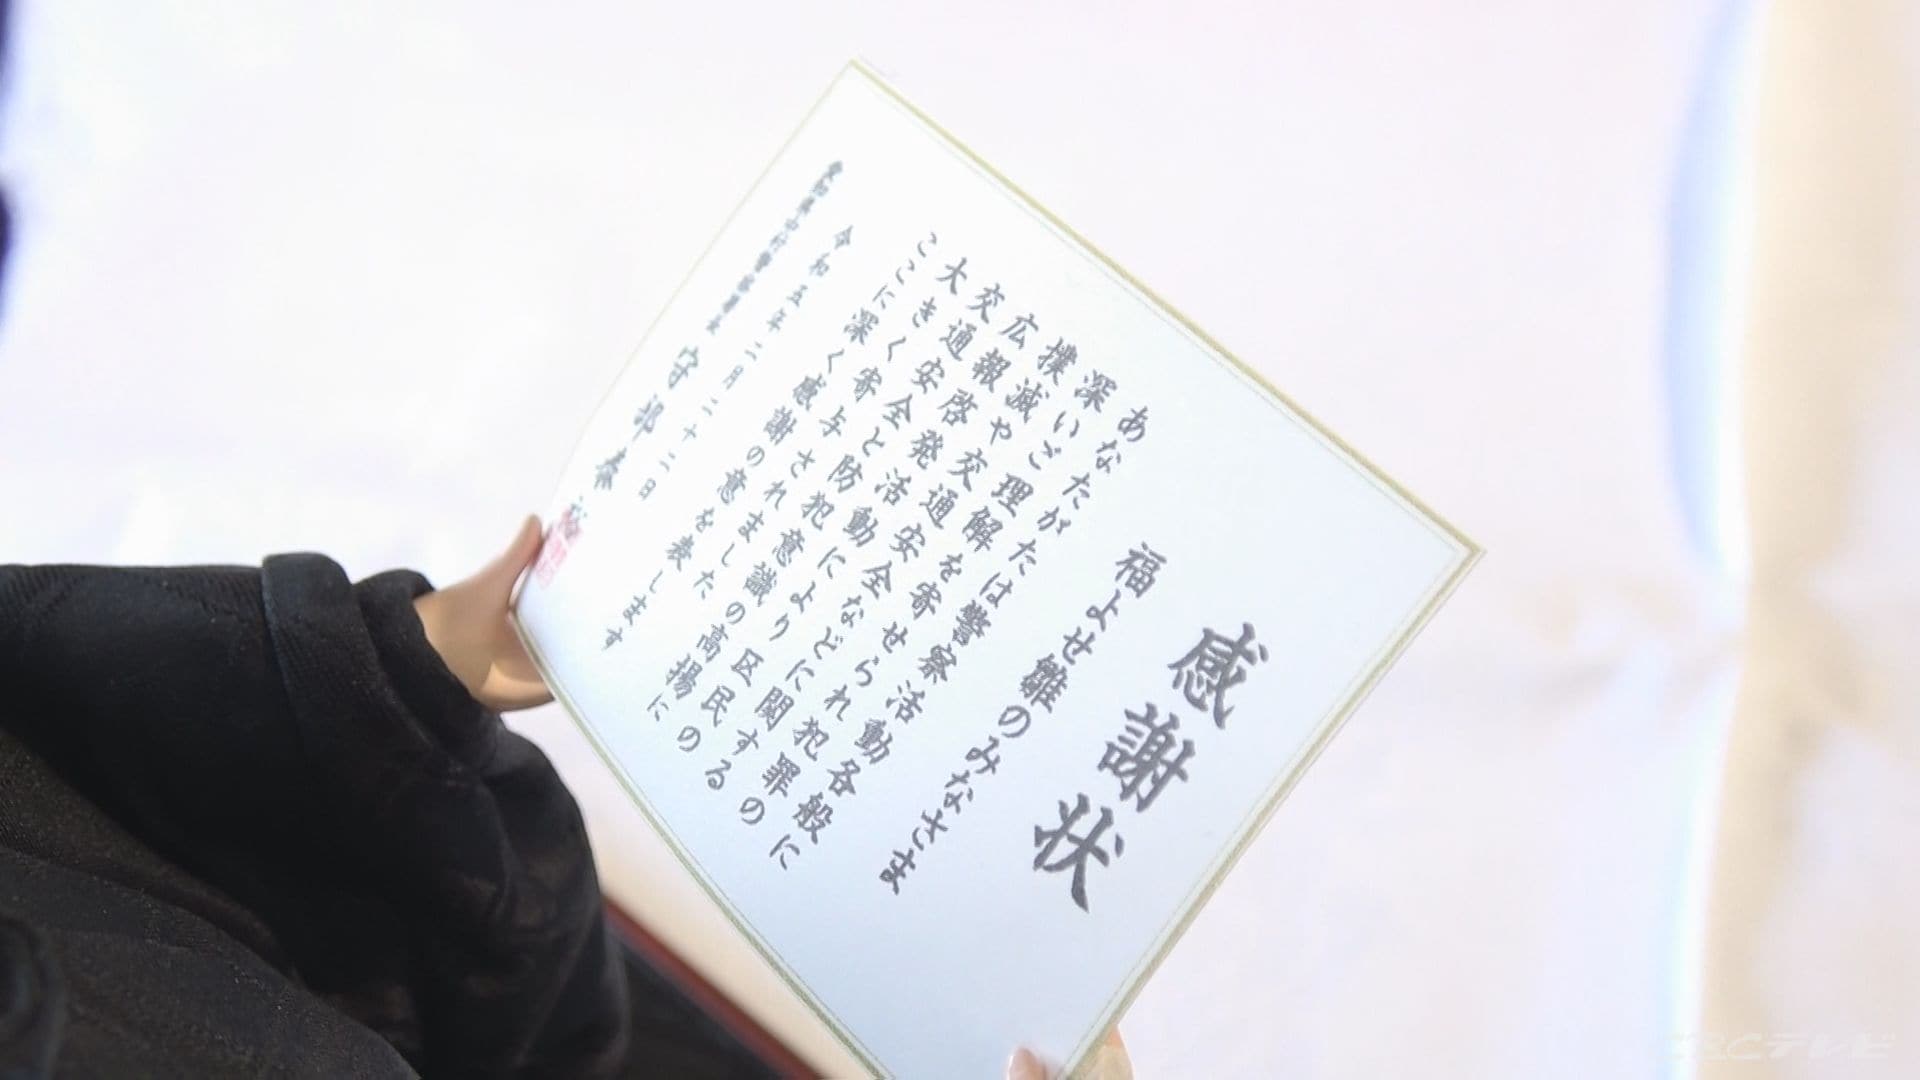 感謝状
福よせ雛のみなさま
あなたがたは警察活動各般に
深いご理解を寄せられ犯罪の
撲滅や交通安全などに関する
広報啓発活動により区民の
交通安全と防犯意識の高揚に
大きく寄与されました
ここに深く感謝の意を表します
令和五年二月二十二日
愛知県中村警察署長 守部
CBCテレビ